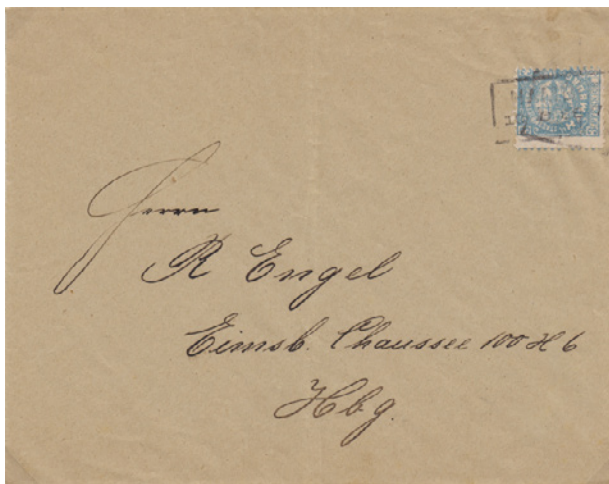 Herrn
R Engel
Eimsb. Chaussee 100 H 6
Hbg.